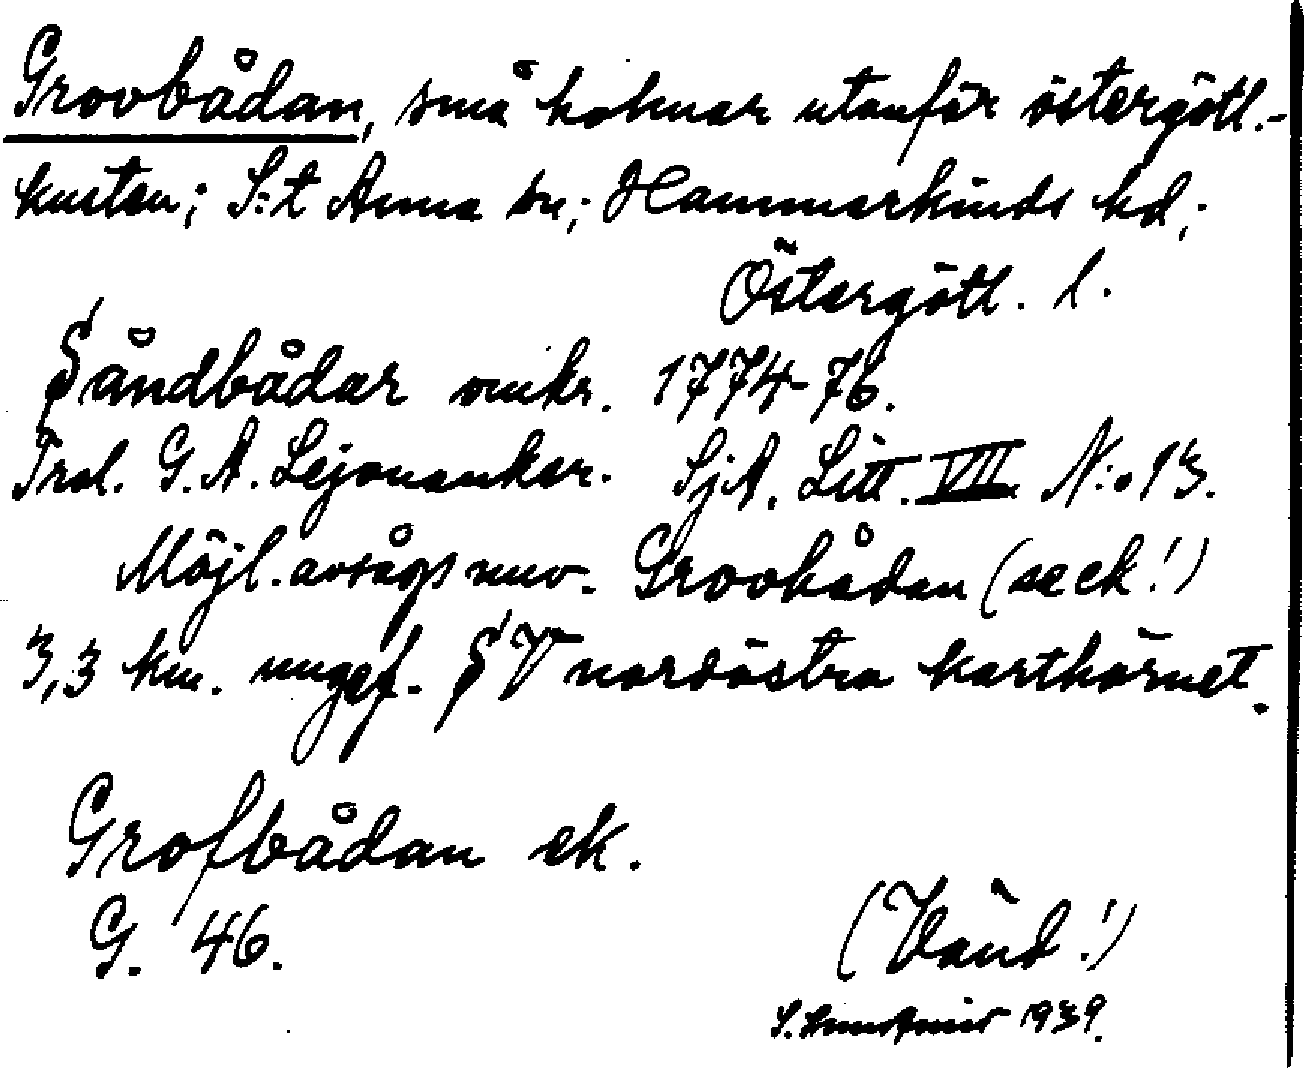 Grovbådan, små holmar utanför östergötl.-
kusten; S:t Anna sn; Hammarkinds hd;
Östergötl. l.
Såndbådar omkr. 1774-76.
Trol. G. A. Lejonanckar. SjA. Litt. VII N:o 13.
Möjl. avsågs nuv. Grovbådan (se ek!)
3,3 km. ungef. S V nordöstra karthörnet.
Grofbådan ek.
G. 46.
(Vänd!)
S. 1939.